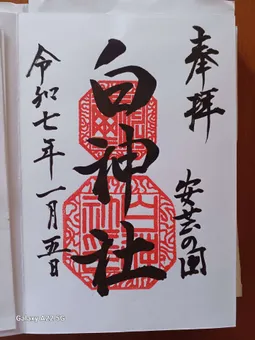 奉拝
安芸の国
白神社
令和七年一月五日
Galaxy A22 5G